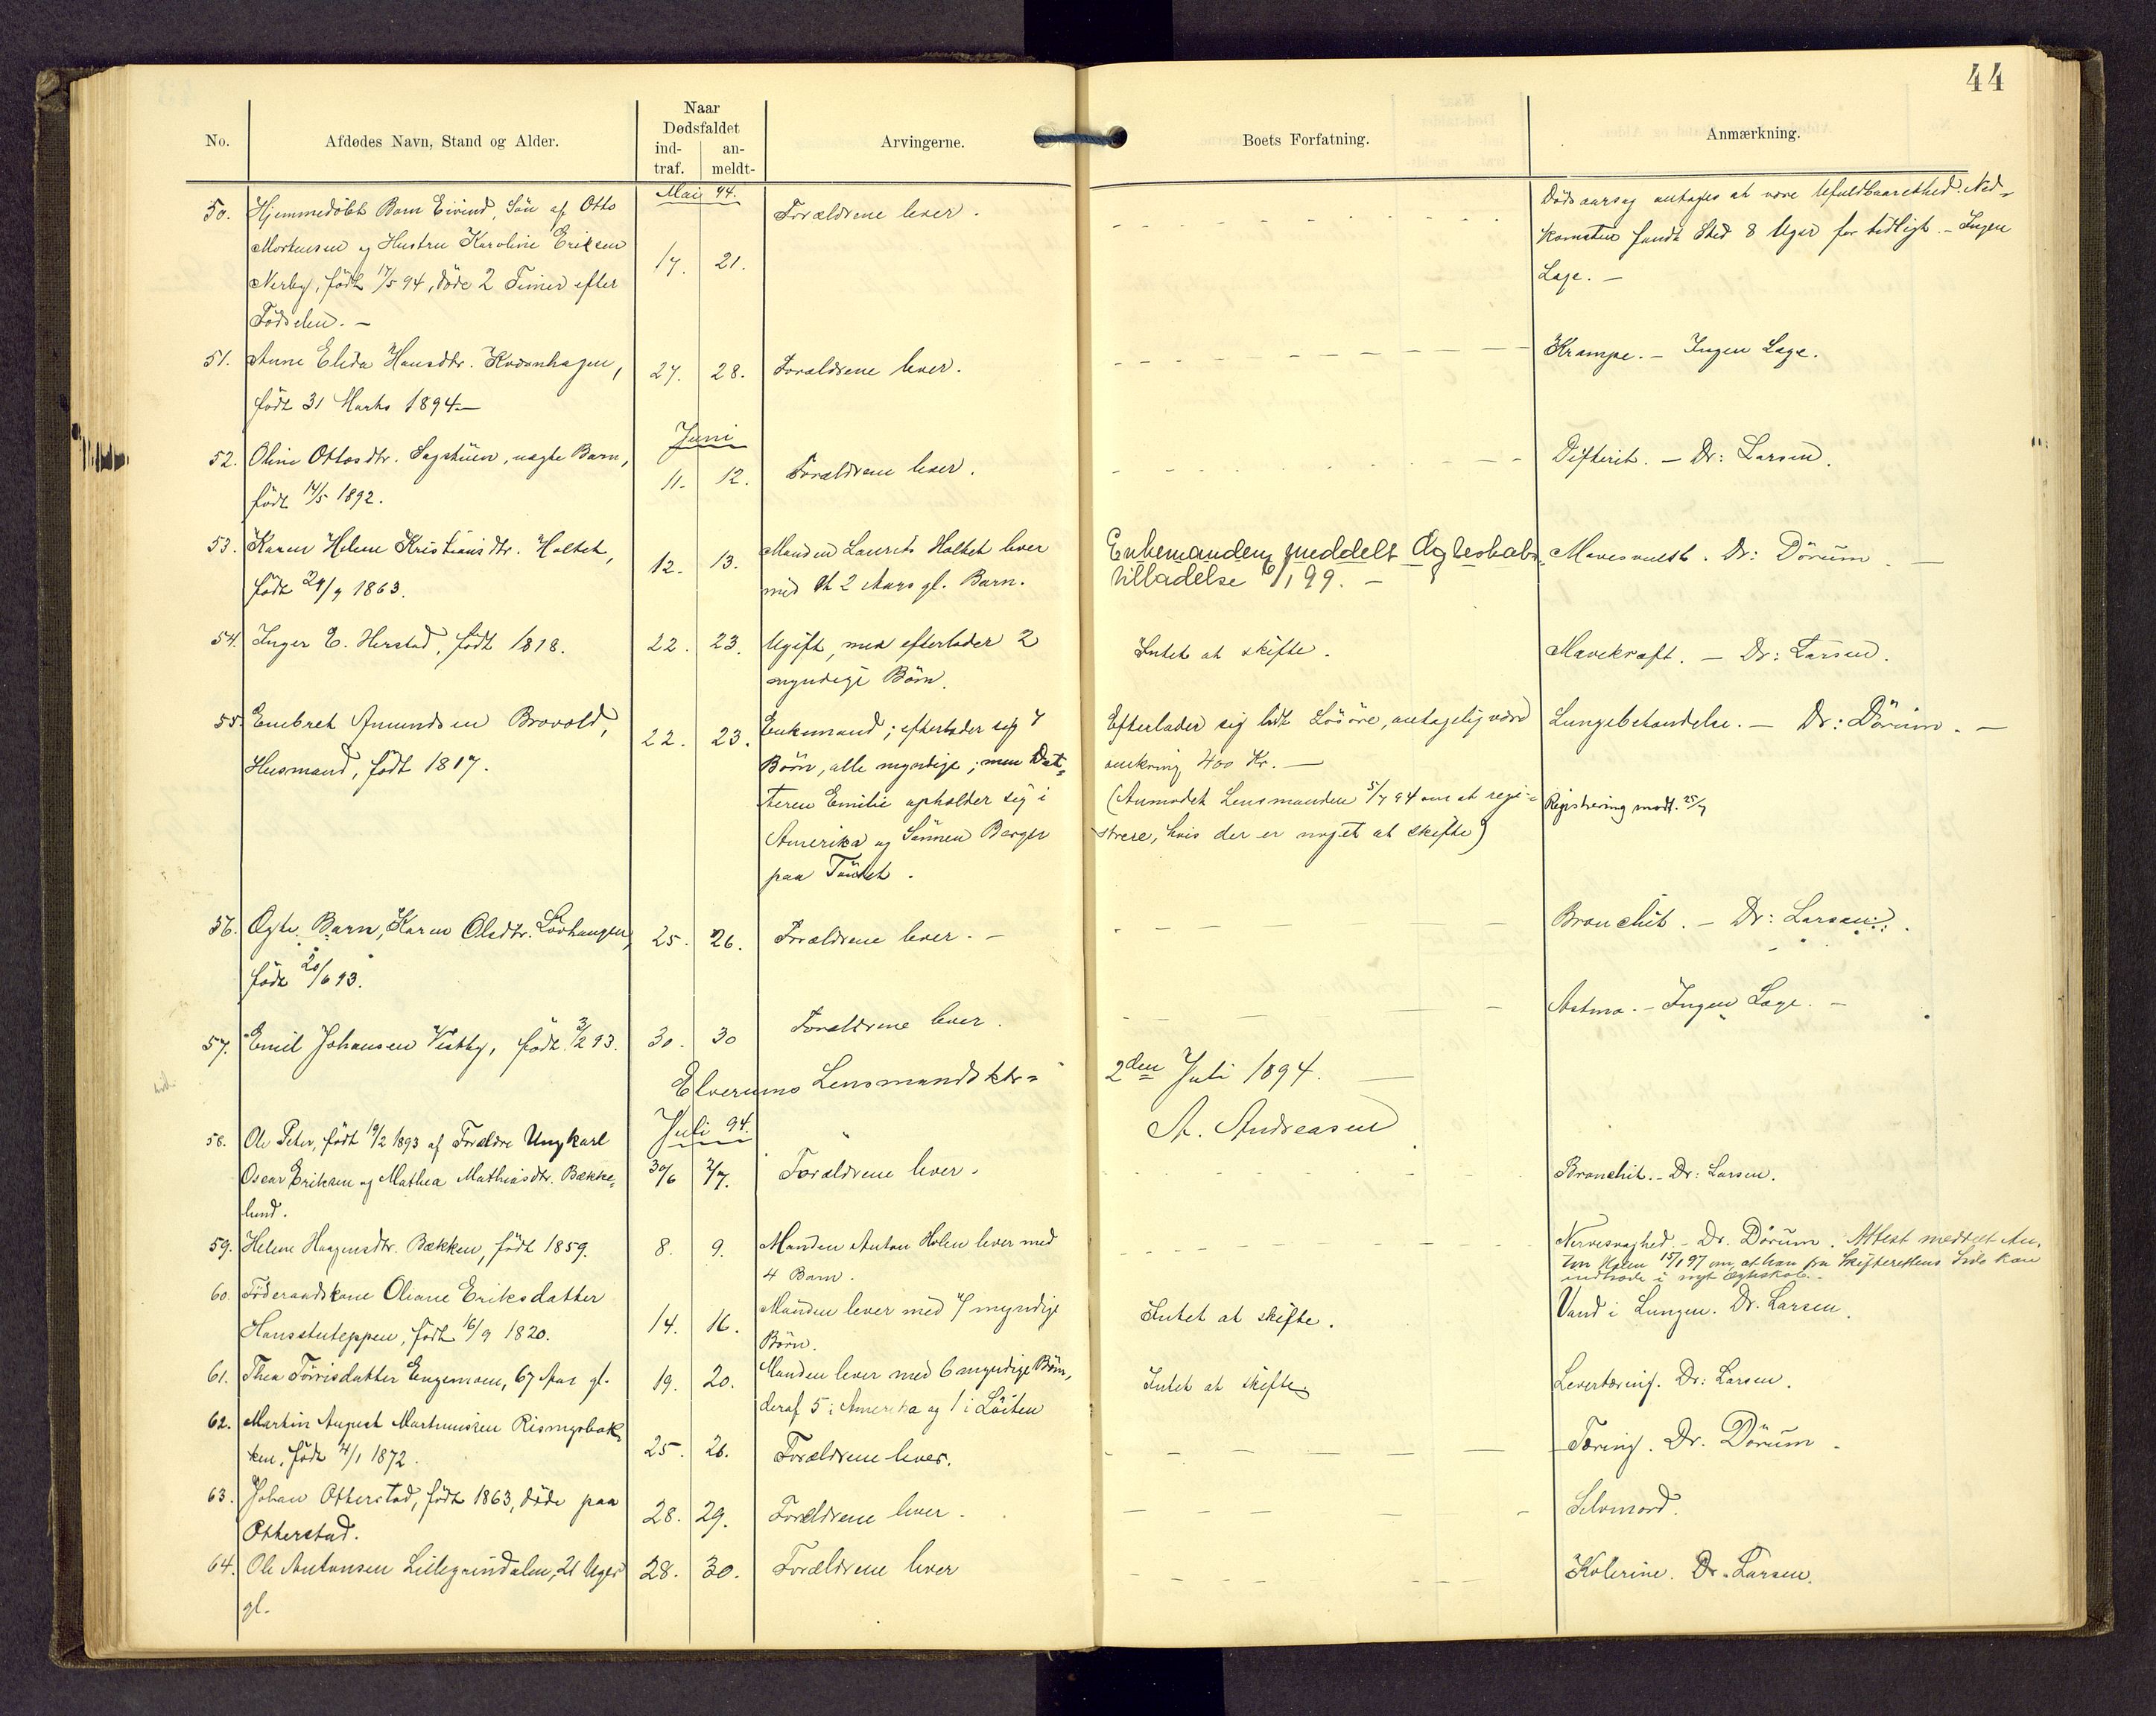 44
No.
Afdødes Navn, Stand og Alder.
Naar
Dødsfaldet
ind-
traf.
an-
meldt-
Arvingerne.
Boets Forfatning.
Anmærkning.
Mai 94.
50. Hjemmedöbt Barn Eivind, Sön af Otto
Mortensen og Hustru Karoline Eriksen
Nerby, født 17/5 94, döde 2 Timer efter
Födselen. —
17. 21.
Forældrene lever.
Dödsaarsag antages at være Ufuldbaarethed. Ned-
komsten fandt Sted 8 Uger for tidligt. — Ingen
Læge. —
51. Anne Elida Hansdtr. Kvænhagen,
född 31 Marts 1894 —
27. 28. Forældrene lever.
Krampe. — Ingen Læge.
Juni
52. Oline Ottosdtr. Sagstuen, uægte Barn,
född 14/5 1892.
11. 12. Forældrene lever.
Difterit. — Dr: Larsen.
53. Karen Helene Kristiansdtr. Holtet,
född 29/9 1863.
12. 13. Manden Laurits Holtet lever
med et 2 Aars gl. Barn.
Enkemanden meddelt Ægteskabs-
tilladelse 6/1 99. —
Mavesvulst. Dr: Dörum. —
54. Inger E. Herstad, född 1818.
22. 23. Ugift, men efterlader 2
myndige Börn.
Intet at skifte.
Mavekræft. — Dr: Larsen.
55. Embret Amundsen Brovold,
Husmand, född 1817.
22. 23. Enkemand; efterlader sig 7
Börn, alle myndige; men Dat-
teren Emilie opholder sig i
Amerika og Sönnen Berger
paa Tönset.
Efterlader sig lidt Lösöre, antagelig værd
omkring 400 Kr. —
(Anmodet Lensmanden 5/7 94 om at regi-
strere, hvis der er noget at skifte)
Lungebetændelse. — Dr: Dörum. —
Registrering modt. 25/7
56. Ægte Barn, Karen Olsdtr. Lövhaugen,
född 20/6 93.
25. 26. Forældrene lever. —
Bronchit. — Dr: Larsen.
57. Emil Johansen Vestby, född 3/2 93.
30. 30 Forældrene lever.
Astma. — Ingen Læge. —
Elverums Lensmandsktr.
2den Juli 1894. —
A. Andreasen
Juli 94.
58. Ole Peter, född 19/2 1893 af Forældre Ungkarl
Oscar Eriksen og Mathea Mathiasdtr. Bække-
lund.
30/6 2/7. Forældrene lever.
Bronchit. — Dr: Larsen.
59. Helene Haagensdtr. Bækken, född 1859.
8. 9. Manden Anton Holen lever med
4 Barn.
Nervesvaghed. — Dr. Dörum. Attest meddelt An-
ton Holen 15/1 97 om, at han fra Skifterettens Side kan
indtræde i nyt Ægteskab. —
60. Föderaadskone Oliane Eriksdatter
Hansstuteppen, född 16/9 1820.
14. 16. Manden lever med 7 myndige
Börn.
Intet at skifte.
Vand i Lungen. Dr. Larsen.
61. Thea Törrisdatter Engemoen, 67 Aar gl.
19. 20. Manden lever med 6 myndige Börn,
deraf 5 i Amerika og 1 i Löiten
Intet at skifte
Levertæring. Dr: Larsen.
62. Martin August Martiniusen Risingsbak-
ken, född 4/1 1872.
25. 26. Forældrene lever.
Tæring. Dr. Dörum.
63. Johan Otterstad, född 1863, döde paa
Otterstad.
28. 29. Forældrene lever.
Selvmord.
64. Ole Antonsen Lillegrindalen, 21 Uger
gl.
28. 30. Forældrene lever
Kolerine. Dr. Larsen.